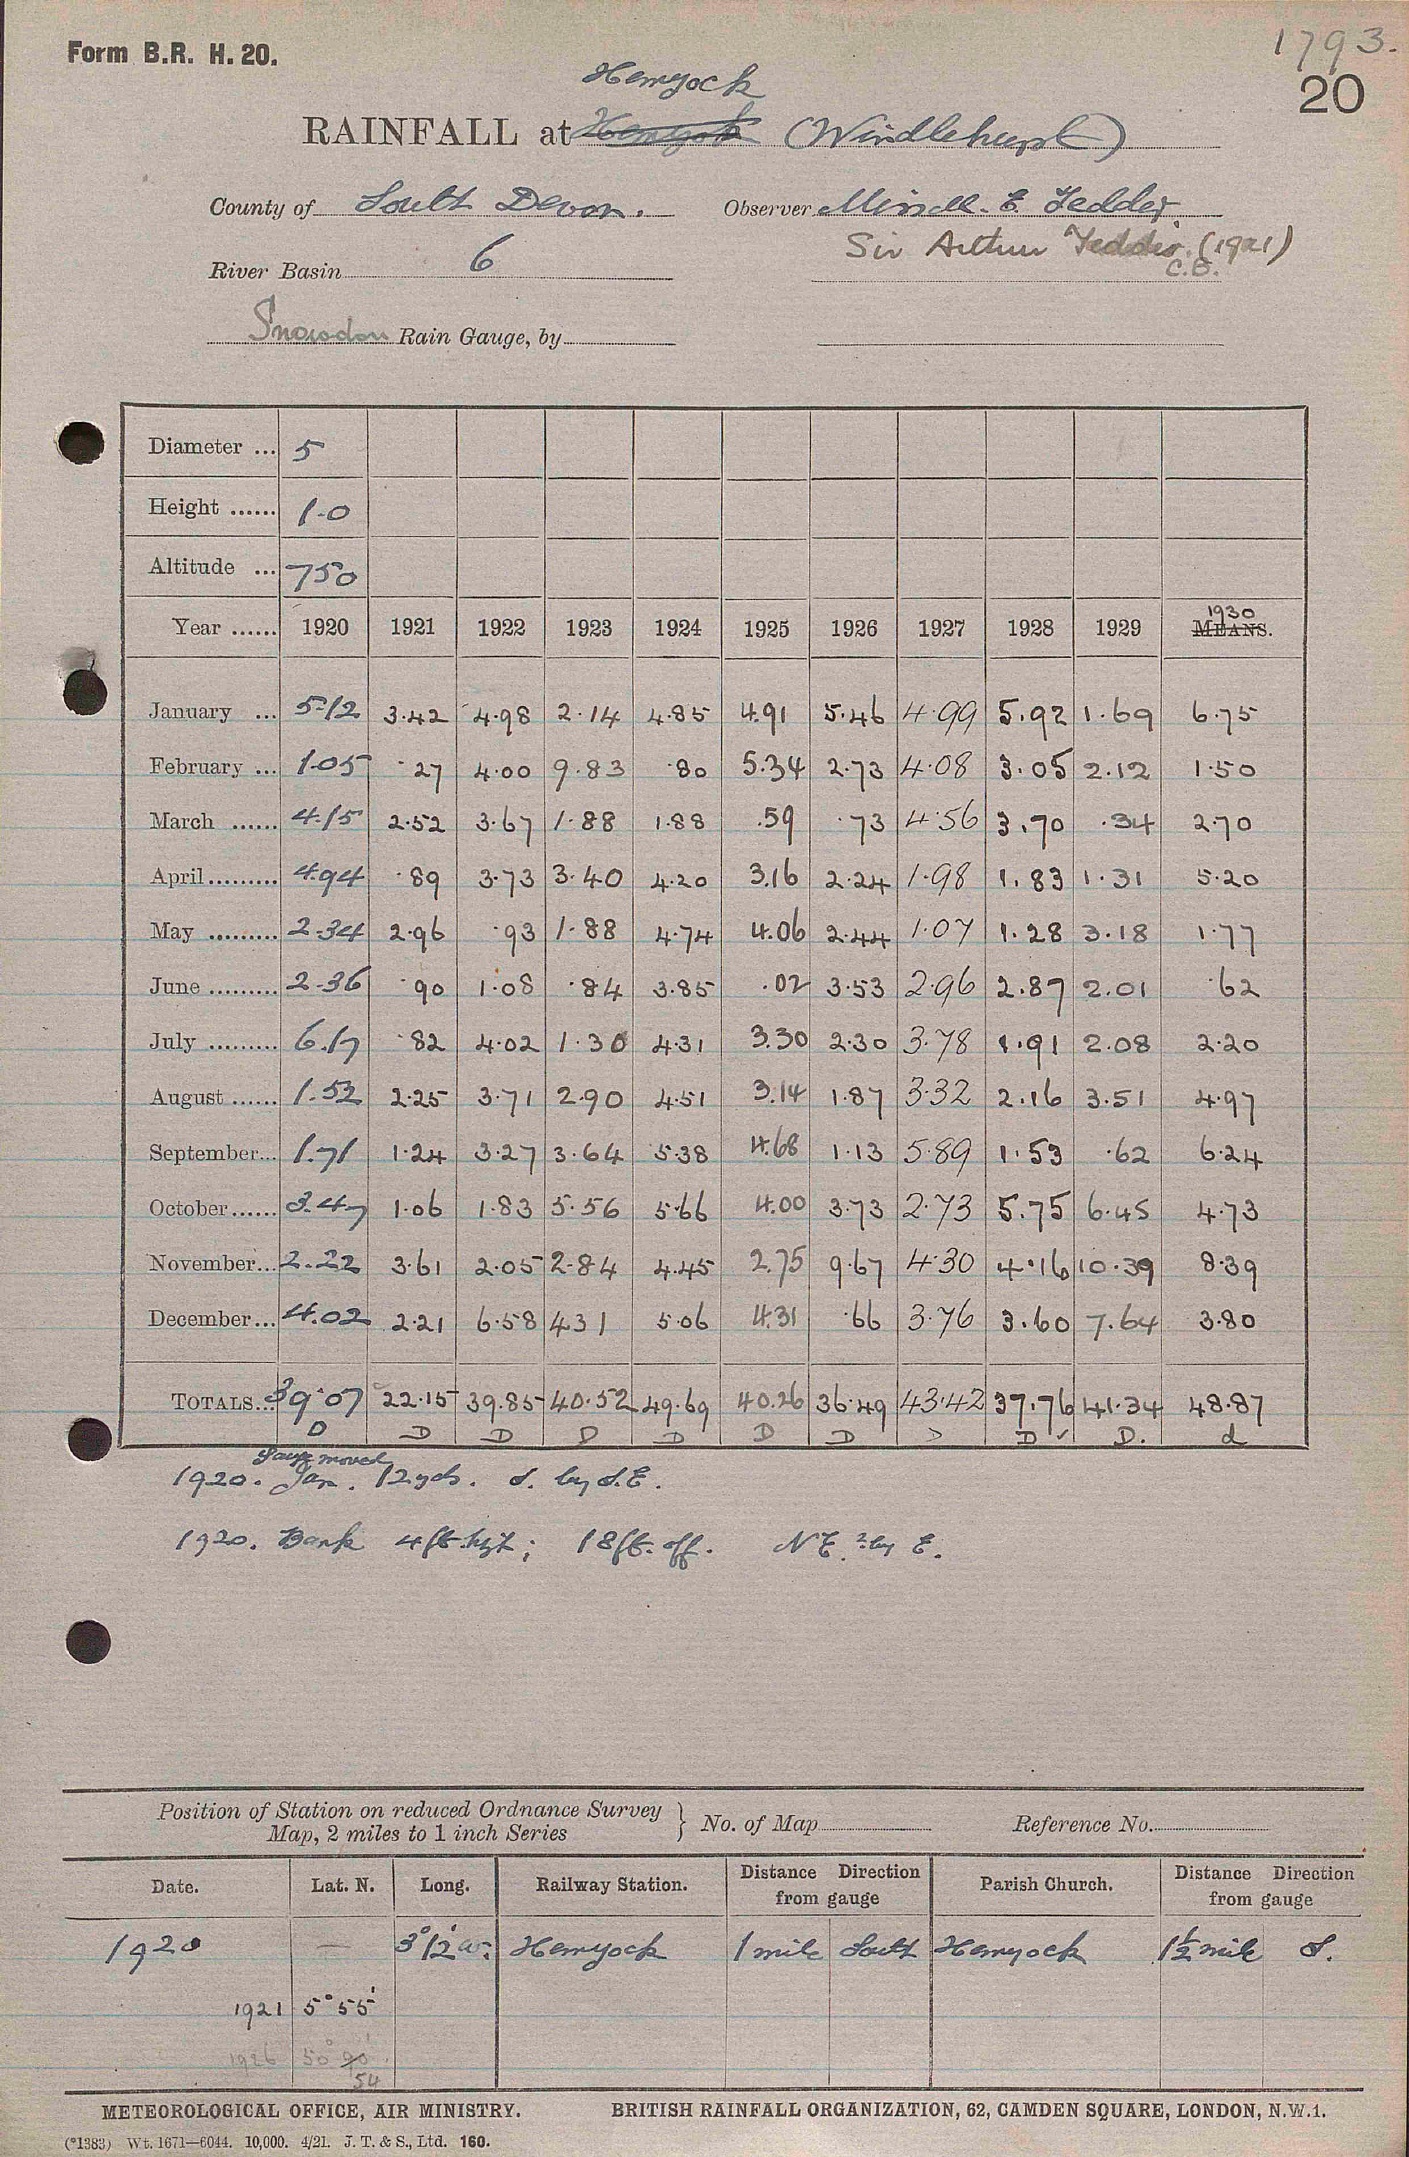 Form B.R. H. 20.
1793.
20
Hemyock
RAINFALL at Hemyock (Windlehurst)
County of South Devon. Observer E. Tedder
Sir Arthur Tedder. (1921)
C.B.
River Basin 6
Snowdon Rain Gauge, by
Diameter ... 5
Height ...... 1.0
Altitude ... 750
1930
Year ...... 1920 1921 1922 1923 1924 1925 1926 1927 1928 1929 MEANS.
January ... 5.12 3.42 4.98 2.14 4.85 4.91 5.46 4.99 5.92 1.69 6.75
February ... 1.05 .27 4.00 9.83 .80 5.34 2.73 4.08 3.05 2.12 1.50
March ...... 4.15 2.52 3.67 1.88 1.88 .59 .73 4.56 3.70 .34 2.70
April ......... 4.94 .89 3.73 3.40 4.20 3.16 2.24 1.98 1.83 1.31 5.20
May ......... 2.34 2.96 .93 1.88 4.74 4.06 2.44 1.07 1.28 3.18 1.77
June ......... 2.36 .90 1.08 .84 3.85 .02 3.53 2.96 2.87 2.01 .62
July ......... 6.17 .82 4.02 1.30 4.31 3.30 2.30 3.78 1.91 2.08 2.20
August ...... 1.52 2.25 3.71 2.90 4.51 3.14 1.87 3.32 2.16 3.51 4.97
September... 1.71 1.24 3.27 3.64 5.38 4.68 1.13 5.89 1.53 .62 6.24
October ...... 3.47 1.06 1.83 5.56 5.66 4.00 3.73 2.73 5.75 6.45 4.73
November... 2.22 3.61 2.05 2.84 4.45 2.75 9.67 4.30 4.16 10.39 8.39
December... 4.02 2.21 6.58 4.31 5.06 4.31 .66 3.76 3.60 7.64 3.80
TOTALS... 39.07 22.15 39.85 40.52 49.69 40.26 36.49 43.42 37.76 41.34 48.87
D D D D D D D D D ✓ D. d
Gauge moved
1920. Jan. 12 yds. S. by S.E.
1920. Bank 4ft. hgt; 18ft. off. N E. by E.
Position of Station on reduced Ordnance Survey
Map, 2 miles to 1 inch Series } No. of Map Reference No.
Date. Lat. N. Long. Railway Station. Distance Direction from gauge Parish Church. Distance Direction from gauge
1920 — 3° 12' W. Hemyock 1 mile South Hemyock 1½ mile S.
1921 5° 55'
1926 50° 90'
54
METEOROLOGICAL OFFICE, AIR MINISTRY. BRITISH RAINFALL ORGANIZATION, 62, CAMDEN SQUARE, LONDON, N.W.1.
(*1383) Wt. 1671—6044. 10,000. 4/21. J. T. & S., Ltd. 160.